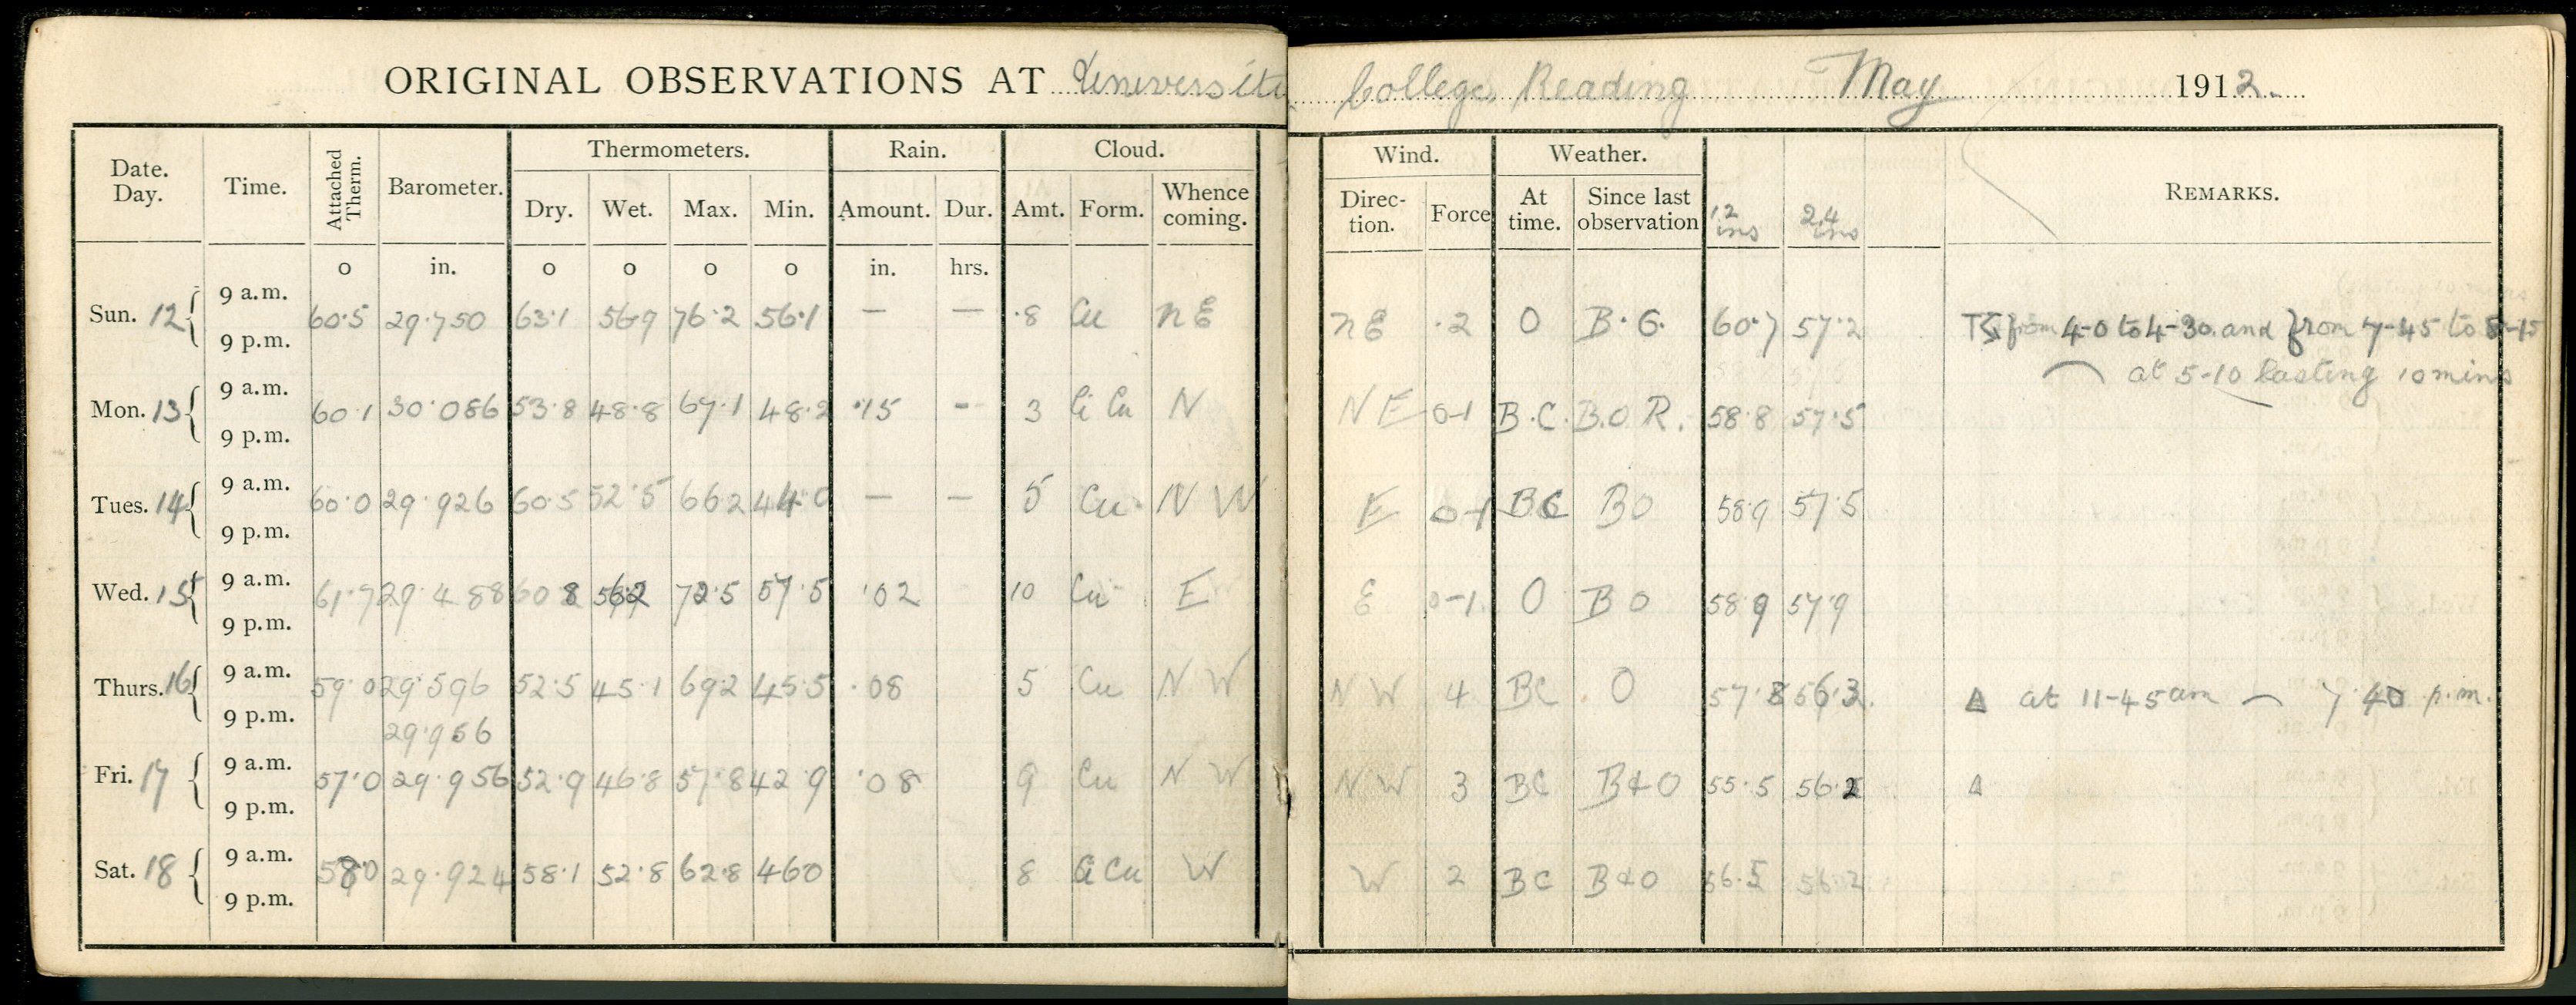 ORIGINAL OBSERVATIONS AT University College, Reading May 1912.
Date. Day. Time. Attached Therm. Barometer. Thermometers. Dry. Wet. Max. Min. Rain. Amount. Dur. Cloud. Amt. Form. Whence coming. Wind. Direc- tion. Force Weather. At time. Since last observation 12 ins 24 ins REMARKS.
o in. o o o o in. hrs.
Sun. 12 { 9 a.m. 9 p.m. 60.5 29.750 63.1 56.9 76.2 56.1 — — .8 Cu NE NE .2 O B.C. 60.7 57.2 from 4-0 to 4-30 and from 7-45 to 8-15
at 5-10 lasting 10 mins
Mon. 13 { 9 a.m. 9 p.m. 60.1 30.086 53.8 48.8 67.1 48.2 .15 - 3 Ci Cu N NE 0-1 B.C. B.O R. 58.8 57.5
Tues. 14 { 9 a.m. 9 p.m. 60.0 29.926 60.5 52.5 66.2 44.0 — — 5 Cu NW E 0-1 BC BO 58.9 57.5
Wed. 15 { 9 a.m. 9 p.m. 61.7 29.488 60.8 72.5 57.5 .02 10 Cu E E 0-1 O BO 58.9 57.9
Thurs. 16 { 9 a.m. 9 p.m. 59.0 29.596 52.5 45.1 69.2 45.5 .08 5 Cu NW NW 4 BC O 57.8 56.3 △ at 11-45 am ⌒ 7.40 p.m.
29.956
Fri. 17 { 9 a.m. 9 p.m. 57.0 29.956 52.9 46.8 57.8 42.9 .08 9 Cu NW NW 3 BC B&O 55.5 56.2 △
Sat. 18 { 9 a.m. 9 p.m. 58.0 29.924 58.1 52.8 62.8 46.0 8 Ci Cu W W 2 BC B&O 56.5 56.2